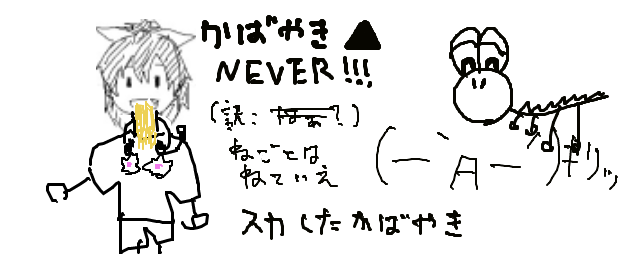 かばやき▲
NEVER!!!
(訳:なあ?)
ねごとは
ねていえ
(－`Д－)キリッ
スカしたかばやき